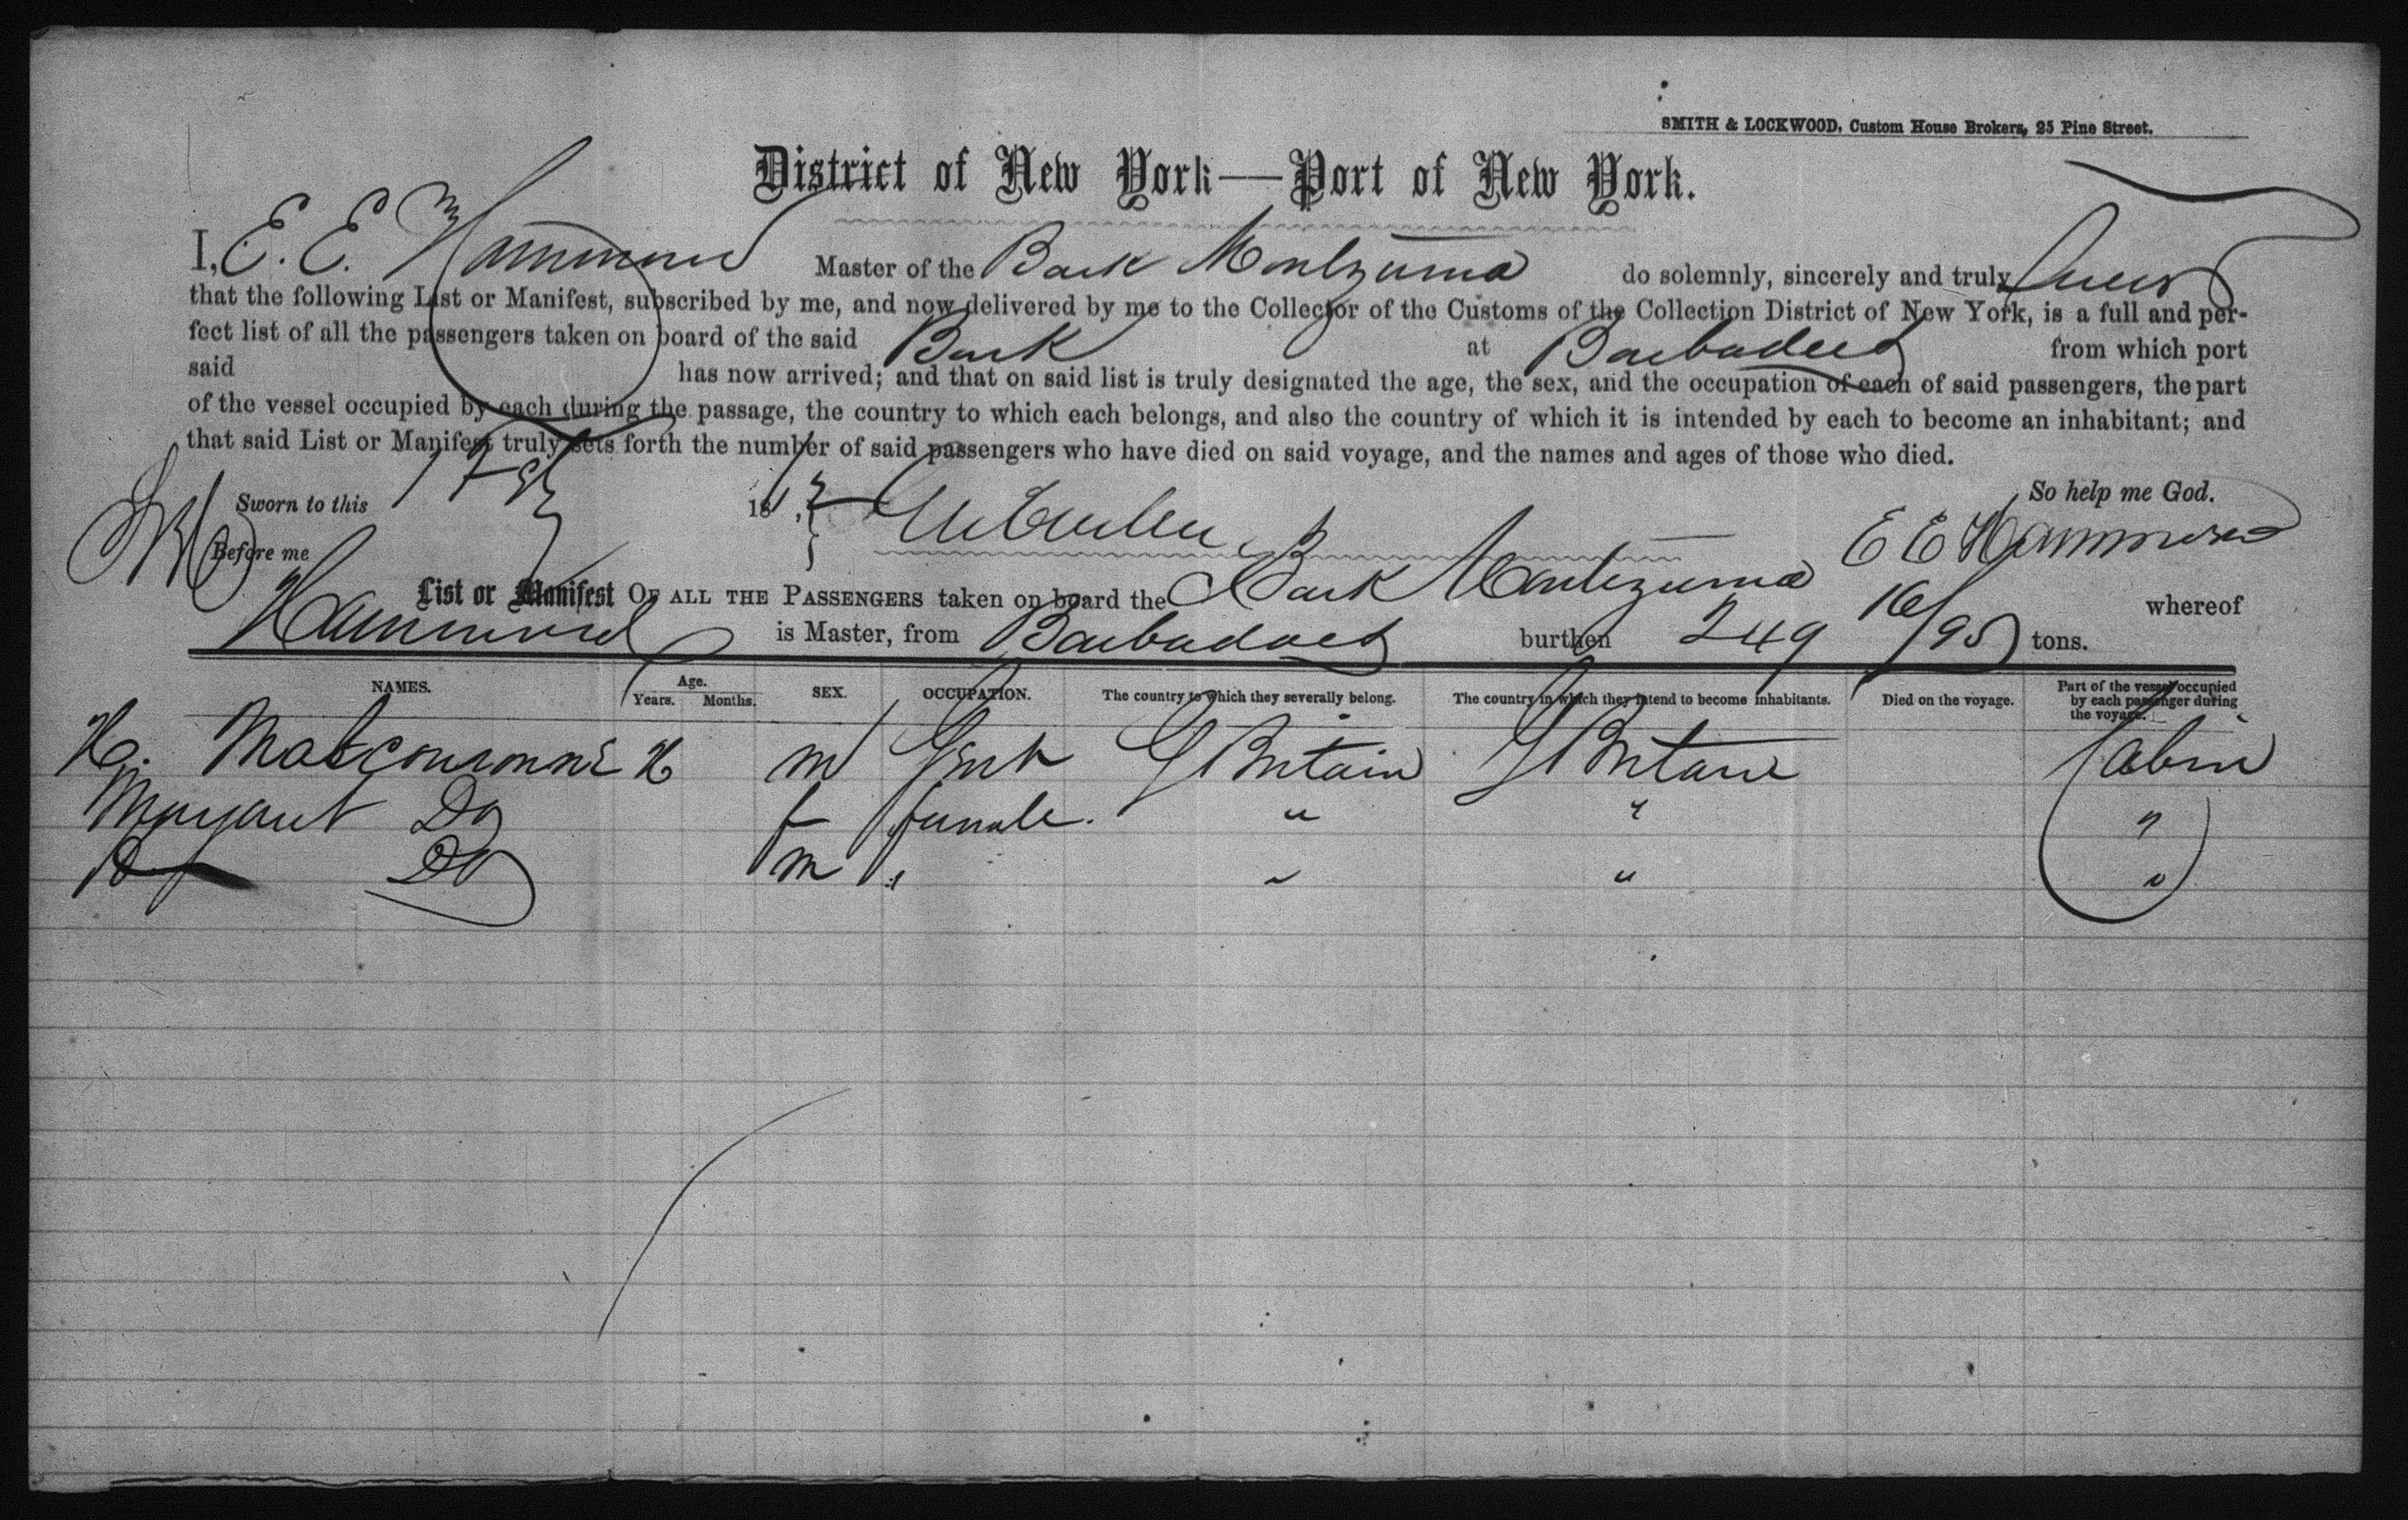 SMITH & LOCKWOOD, Custom House Brokers, 25 Pine Street.
District of New York—Port of New York.
I, E. E. Hammond Master of the Bark Montzuma do solemnly, sincerely and truly Swear
that the following List or Manifest, subscribed by me, and now delivered by me to the Collector of the Customs of the Collection District of New York, is a full and per-
fect list of all the passengers taken on board of the said Bark at Barbadoes from which port
said has now arrived; and that on said list is truly designated the age, the sex, and the occupation of each of said passengers, the part
of the vessel occupied by each during the passage, the country to which each belongs, and also the country of which it is intended by each to become an inhabitant; and
that said List or Manifest truly sets forth the number of said passengers who have died on said voyage, and the names and ages of those who died.
So help me God.
Sworn to this 18 , E E Hammond
Before me
List or Manifest OF ALL THE PASSENGERS taken on board the Bark Montezuma whereof
Hammond is Master, from Barbadoes burthen 249 16/95 tons.
NAMES. Age. Years. Months. SEX. OCCUPATION. The country to which they severally belong. The country in which they intend to become inhabitants. Died on the voyage. Part of the vessel occupied by each passenger during the voyage.
H. m Gent G Britain G Britain Cabin
Do f female. " " "
Do m " " " "